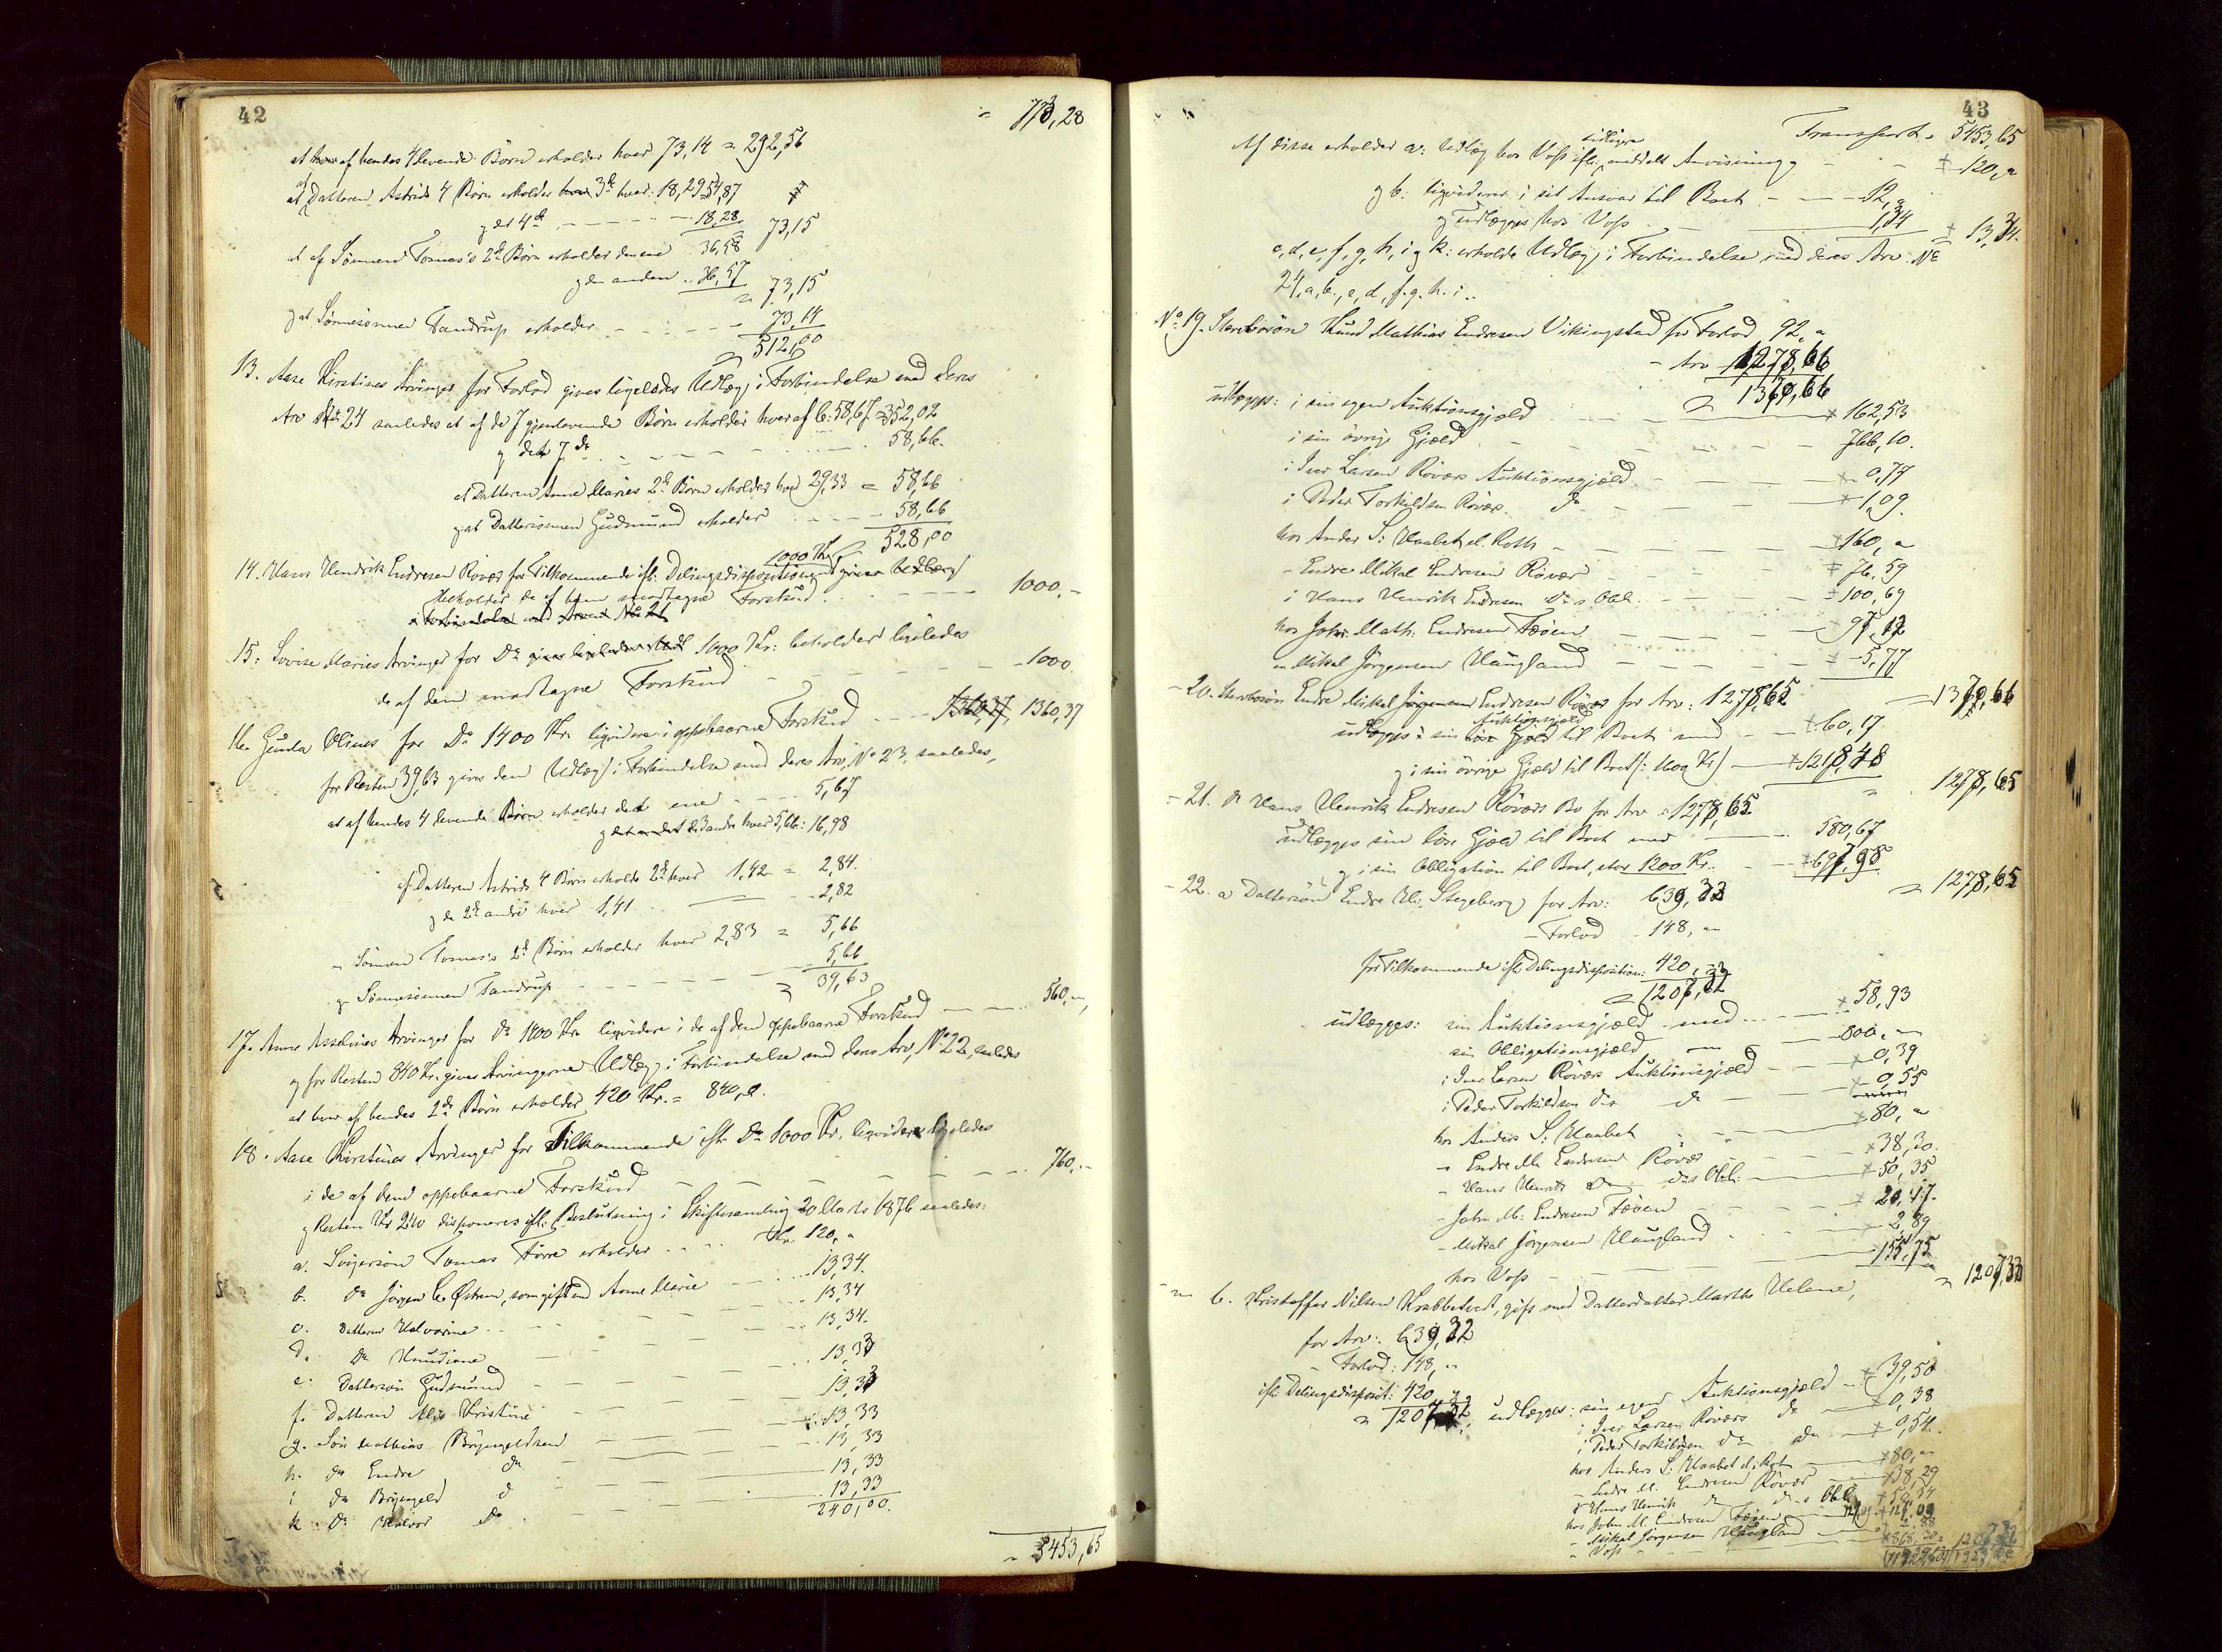 42
= 773,28
at hver af hendes 4 levende Börn erholder hver 73,14 = 292,56
at Datteren Astrids 4 Börn erholder hver 3de hver: 18,29 54,87
og det 4de - - - 18,28 73,15
at af Sönnen Tomas's 2de Börn erholder den ene 36,58
og den anden .. 36,57
= 73,15
og at Sönnesönnen Tandrup erholder - - - 73,14
= 512,00
13. Aase Kirstines Arvinger for Forlod gives ligeledes Udlæg i Forbindelse med deres
Arv No 24 saaledes at af de 7 gjenlevende Börn erholder hver af 6: 58,67 = 352,02
og det 7de - - - 58,66.
at Datteren Anne Maries 2de Börn erholder hver 29,33 = 58,66
og at Dattersönnen Gudmund erholder - - - 58,66
528,00
14. Hans Hendrik Endresen Rövær for Tilkommende ifl: Delingsdispositionen 1000 Kr gives Udlæg
beholder de af ham modtagne Forskud - - - 1000,-
i Forbindelse med Arven No 21
15. Lovise Maries Arvinger for Do gives ligeledes Udl 1000 Kr: beholder ligeledes
de af dem modtagne Forskud - - - 1000
16. Gunla Olines for Do 1400 Kr. liqvidere i oppebaarne Forskud - - - 1360,37, 1360,37
for Resten 39,63 gives dem Udlæg i Forbindelse med deres Arv, No 23, saaledes,
at af hendes 4 levende Börn erholder det ene - - - 5,67
og de 3 andre hver 5,66: 16,98
af Datteren Astrids 4 Börn erholde 2de hver 1,42 = 2,84.
og de 2de andre hver 1,41 - - - 2,82
- Sönnen Tomas's 2de Börn erholder hver 2,83 = 5,66
og Sönnesönnen Tandrup - - - 5,66
= 39,63
17. Anne Asseline Arvinger for Do 1400 Kr. liqvidere i de af dem oppebaarne Forskud - - - 560,-
og for Resten 840 Kr. gives Arvingerne Udlæg i Forbindelse med deres Arv, No 22, saaledes
at hver af hendes 2de Börn erholder 420 Kr. = 840,-
18. Aase Kirstines Arvinger for Tilkommende ifl: Do 1000 Kr. liqvidere ligeledes
i de af dem oppebaarne Forskud - - - 760,-
og Resten Kr 240 disponeres ifl: Beslutning i Skiftesamling 20 Marts 1876 saaledes:
a. Svigersön Tomas Förre erholder - - Kr. 120,-
b. Do Jörgen C. Østrem, som gift med Anne Marie - - - 13,34.
c. Datteren Halvorine - - - 13,34
d. Do Knudiane - - - 13,34.
e. Dattersön Gudmund - - - 13,33
f. Datteren Alis Kristine - - - 13,33
g. Sön Mathias Bryngeldsen - - - 13,33
h. do Endre do - - - 13,33
i do Bryngeld d - - - 13,33
k Do Halvor do - - - 13,33
240,00.
= 5453,65
43
Transport. 5453,65
Af disse erholder a: Udlæg hos Voss ifl: tidligere meddelt Anvisning - - - 120,-
og b: liqviderer i sit Ansvar til Boet - - - 12,-
og udlægges hos Voss - - - 1,34
13,34.
c, d, e, f, g, h, i og k: erholde Udlæg i Forbindelse med deres Arv No
24, a, b, c, d, f. g. h. i..
No 19. Stervbosön Knud Mathias Endresen Vikingstad for Forlod 92,-
- Arv 1278,66
= 1370,66
udlægges: i sin egen Auktionsgjæld - - - 162,53
i sin övrige Gjæld - - - 766,10.
i Iver Larsen Rövær Auktionsgjæld - - - 0,77
i Peder Torkildsen Rövær. do - - - 1,09.
hos Anders S: Haabet el. Roth - - - 160,-
- Endre Mikal Endresen Rövær - - - 76,59
i Hans Henrik Endresen Do s Obl. - - - 100,69
hos John Math. Endresen Fæöen - - - 97,12
- Mikal Jörgensen Haugland - - - 5,77
1370,66
- 20. Stervbosön Endre Mikal Endresen Rövær for Arv: 1278,65
udlægges i sin Auktionsgjæld til Boet med - - 60,17.
og i sin övrige Gjæld til Boet (: 1600 Kr) - 1218,48
= 1278,65
- 21. Do Hans Henrik Endresen Rövær Bo for Arv = 1278,65
udlægges sin löse Gjæld til Boet med - - - 580,67
og i sin Obligation til Boet, stor 1200 Kr. - - 697,98
= 1278,65
- 22. a Dattersön Endre Ur: Stegeberg for Arv: 639,33
- Forlod - 148,-
for Tilkommende ifl. Delingsdisposition: 420,-
= 1207,33
udlægges: sin Auktionsgjæld med - - - 58,93
sin Obligationsgjæld - - - 800,-
i Iver Larsen Röværs Auktionsgjæld - - - 0,39
i Peder Torkildsen Do do - - - 0,55
hos Anders S: Haabet - - - 80,-
- Endre M. Endresen Rövær - - - 38,30.
- Hans Henrik Do Do s Obl: - - - 50,35
- John M: Endresen Fæöen - - - 20,17.
- Mikal Jörgensen Haugland - - - 2,89
hos Voss - - - 155,75
= 1207,33
- b. Kristoffer Nilsen Krabbetvedt, gift med Datterdatter Marthe Helene,
for Arv: 639,32
- Forlod: 148,-
ifl. Delingsdisposit: 420,-
= 1207,32, udlægges: sin egen Auktionsgjæld - 39,50
i Iver Larsen Röværs do - 0,38
i Peder Torkildsen do do - 0,54.
hos Anders S: Haabet el: Rot - 80,-
- Endre M. Endresen Rövær - 38,29
Hans Henrik do do s Obl. 50,34
hos John M. Endresen Fæöen
- Mikal Jörgensen Haugland - 2,88
- Voss